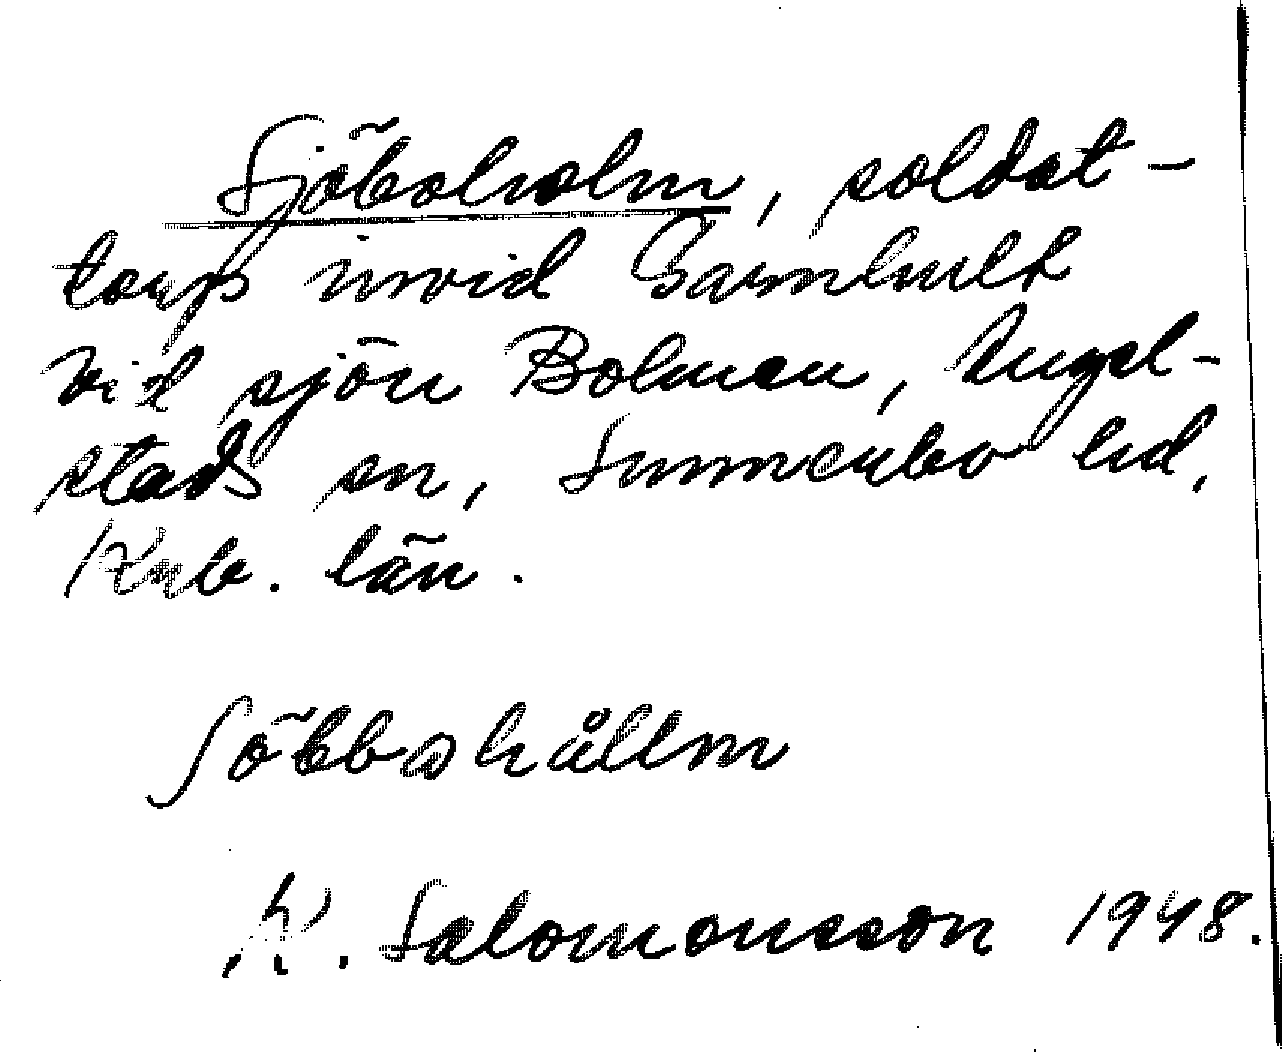 Sjöboholm, soldat-
torp invid Gavnhult
vid sjön Bolmen, Angel-
stads sn, Sunnerbo hd,
Krb. län.
Söbbahållm
K. Salomonsson 1948.